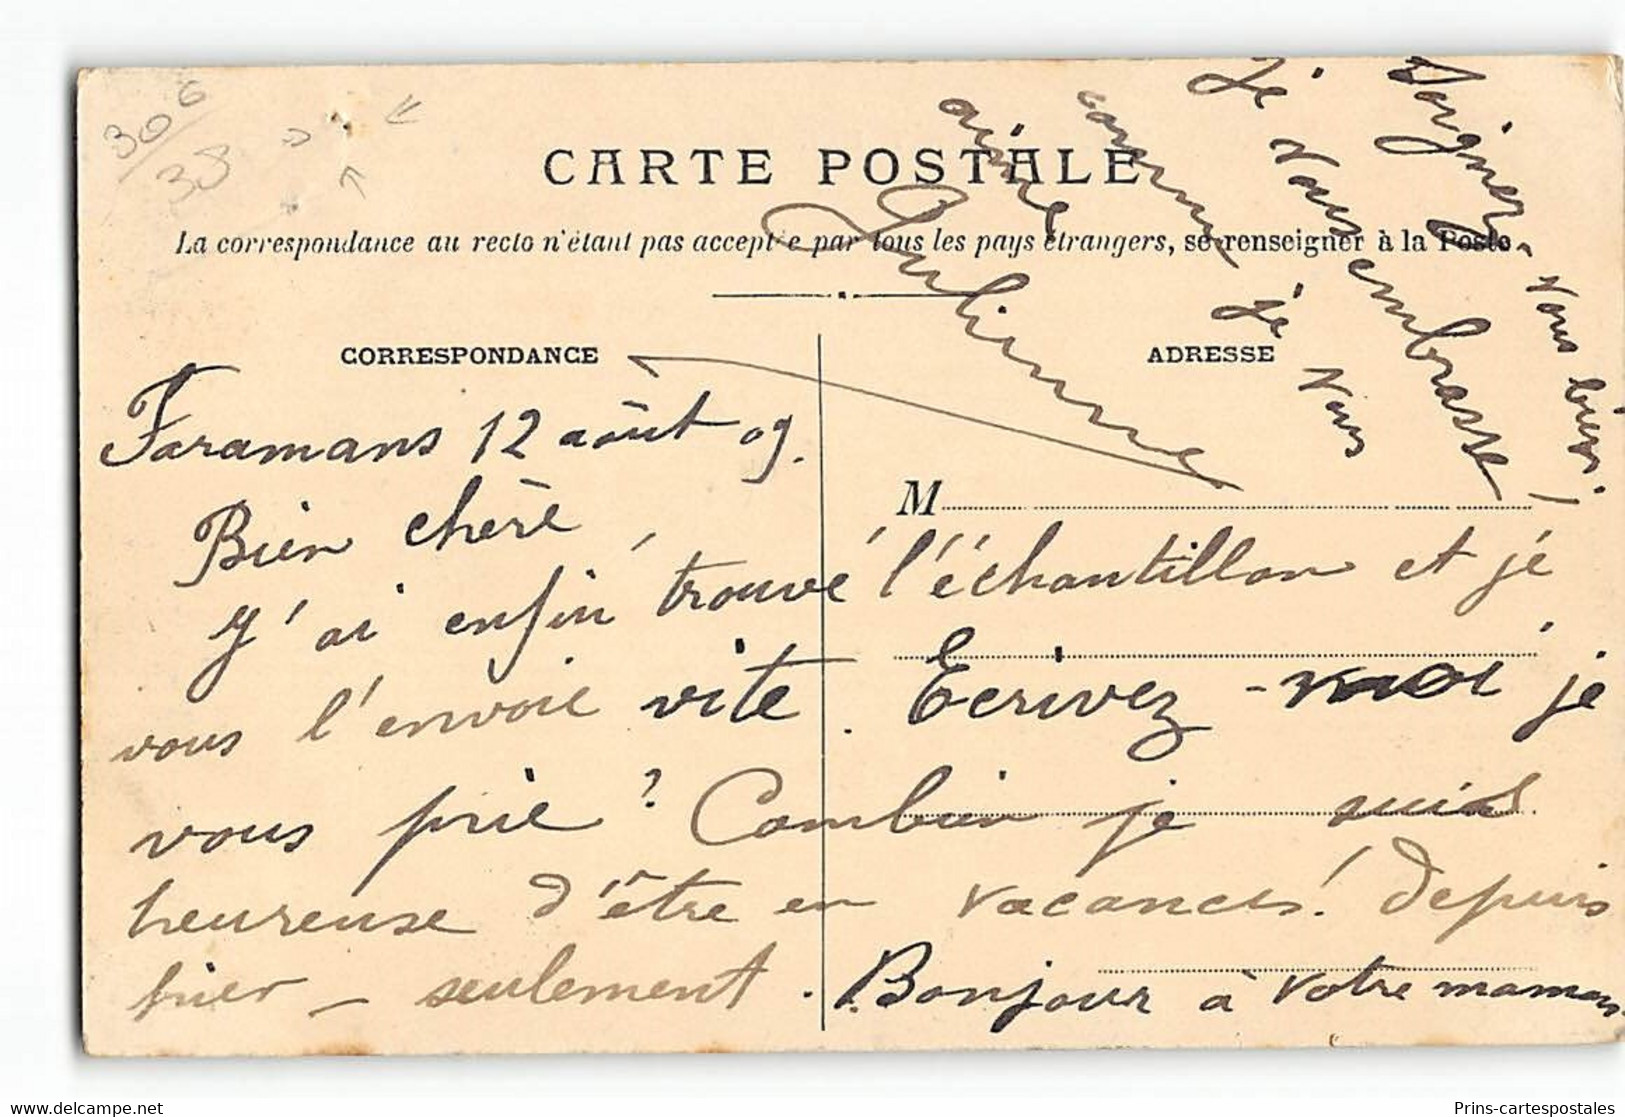 30 6
38
CARTE POSTALE
La correspondance au recto n'étant pas acceptée par tous les pays étrangers, se renseigner à la Poste
CORRESPONDANCE
ADRESSE
M
Faramans 12 août 09.
Bien chère
J'ai enfin trouvé l'échantillon et je
vous l'envoie vite. Ecrivez-moi je
vous prie? Combien je suis
heureuse d'être en vacances! depuis
hier - seulement. Bonjour à votre maman.
Soignez-vous bien.
Je vous embrasse
comme je vous
aime
Julienne
Prins-cartespostales